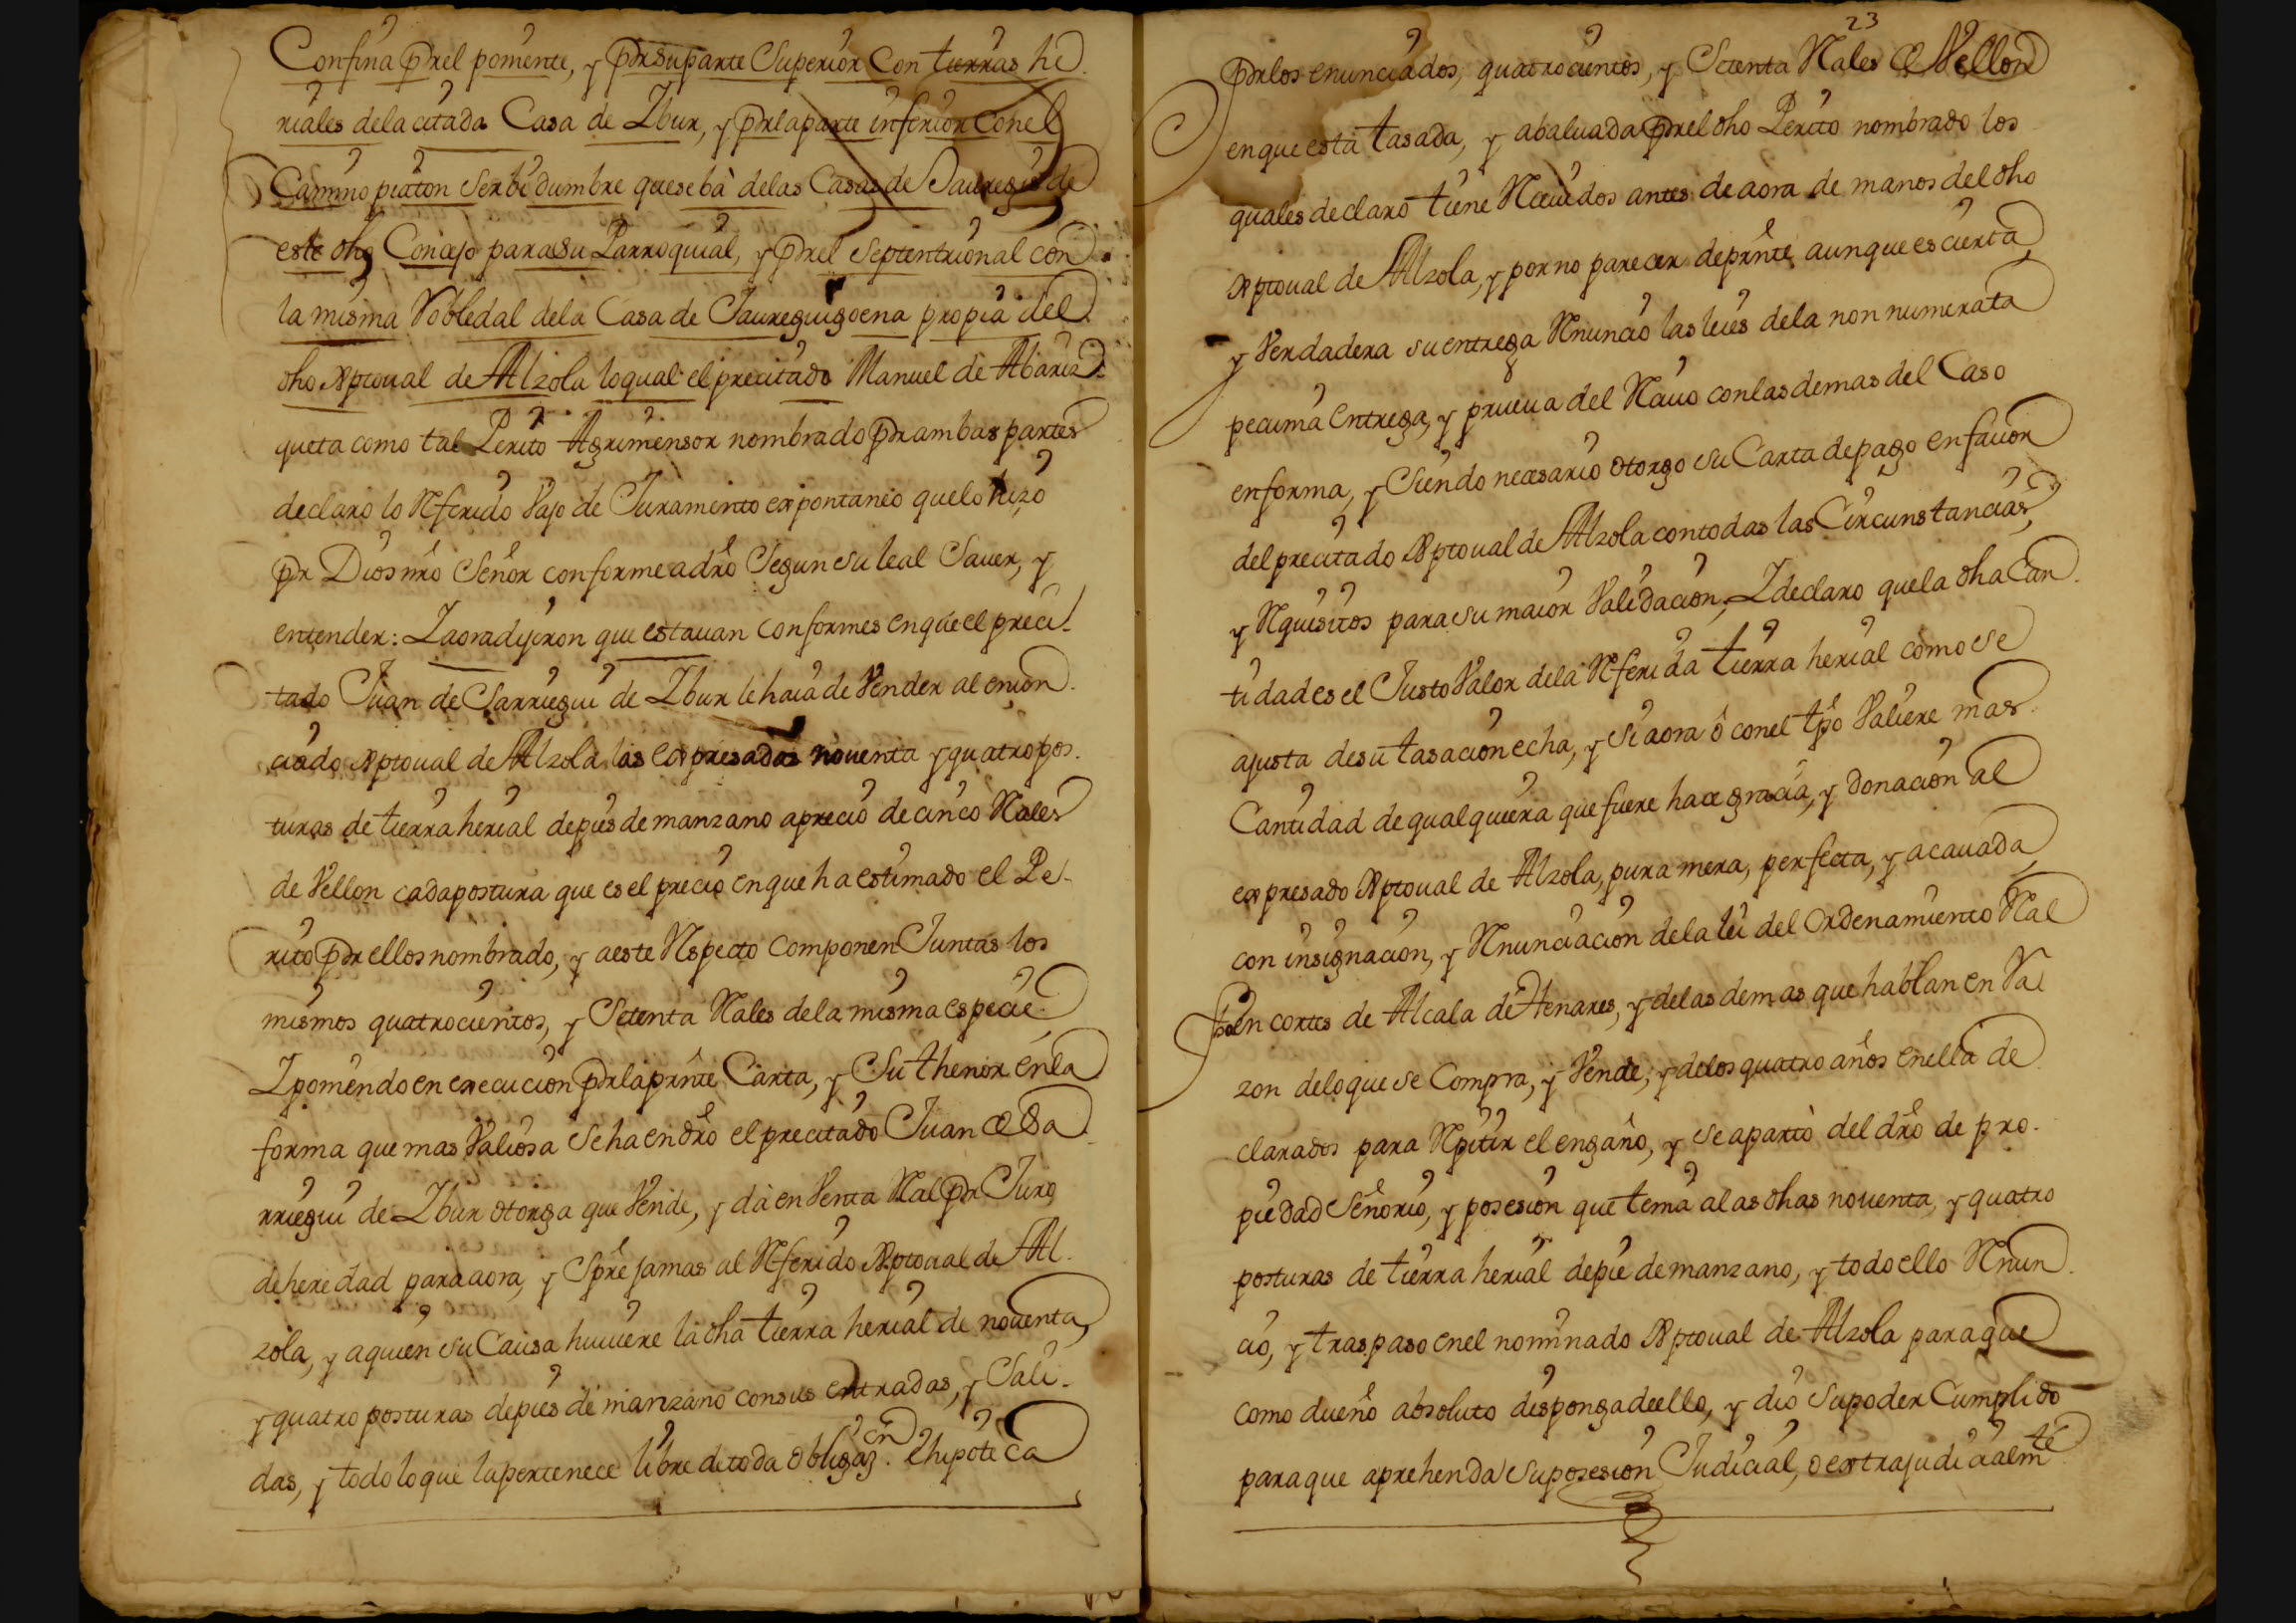 Confina prel poniente, y prsuparte Superior Con tierras he
riales dela citada Casa de Ybur, y prlaparte inferior Conel
Camino piaton Serbidumbre quese bà delas Casas de Jauregui de
este dho Concejo parasu Parroquial, y prel Septentrional con
la misma Robledal dela Casa de Jaureguigoena propia del
dho Xptoual de Alzola loqual el precitado Manuel de Abariz
queta como tal Perito Agrimensor nombrado prambas partes
declaro lo Rferido Vajo de Juramento expontaneo quelo hizo
pr Dios nrô Señor conforme adrô Segun su leal Sauer, y
entender: Yaoradijeron que estauan conformes enque el preci-
tado Juan de Sarriegui de Ybur le haia de Vender al enun
ciado Xptoual de Alzola las expresadas nouenta y quatro pos.
turas de tierra herial depies de manzano aprecio de cinco Rales
de Vellon cadapostura que es el precio enque ha estimado el Pe-
rito pr ellos nombrado, y aeste Rspecto componen Juntas los
mismos quatrocientos, y Setenta Rales dela misma especie
Yponiendo en execucion prlaprnte Carta, y Su thenor enla
forma que mas Valiosa Seha endrô el precitado Juan de Sa
rriegui de Ybur otorga que Vende, y dà en Venta Ral pr Juro
deheredad paraaora, y Spre jamas al Rferido Xptoual de Al-
zola, y aquien su Causa huuiere la dha tierra herial de nouenta,
y quatro posturas depies de manzano consus entradas, y Sali-
das, y todo loque lapertenece libre de toda obligazn. Ehipoteca
23
Prlos enunciados, quatrocientos, y Setenta Rales de Vellon
enque està tasada, y abaluada prel dho Perito nombrado los
quales declarò tiene Rceuidos antes de aora de manos del dho
Xptoual de Alzola, y por no parecer deprnte aunque es cierta,
y Verdadera su entrega Rnunciò las leies dela non numerata
pecunia entrega, y prueua del Rciuo conlas demas del Caso
enforma, y Siendo necesario otorgo su Carta depago enfauor
delprecitado Xptoual de Alzola contodas las Circunstancias,
y Rquisitos para su maior Validacion; Ydeclaro quela dha Can
tidad es el Justo Valor dela Rferida tierra herial como se
ajusta desu tasacion echa, y Si aora ô conel tpô Valiere mas
Cantidad de qualquiera que fuere hace gracia, y donacion al
expresado Xptoual de Alzola, pura mera, perfecta, y acauada
con insignacion, y Rnunciacion dela lei del Ordenamiento Ral
en cortes de Alcala de Henares, y delas demas que hablan en Ra
zon deloque se Compra, y Vende, y delos quatro años enella de
clarados para Rpitir el engaño, y se apartò del drô de pro-
piedad Señorio, y posesion que tenia alas dhas nouenta, y quatro
posturas de tierra herial depie demanzano, y todo ello Rnun
cio, y traspaso enel nominado Xptoual de Alzola paraque
como dueño absoluto disponga deello, y diò Supoder Cumplido
paraque aprehenda Suposesion Judicial, o extrajudicialmte